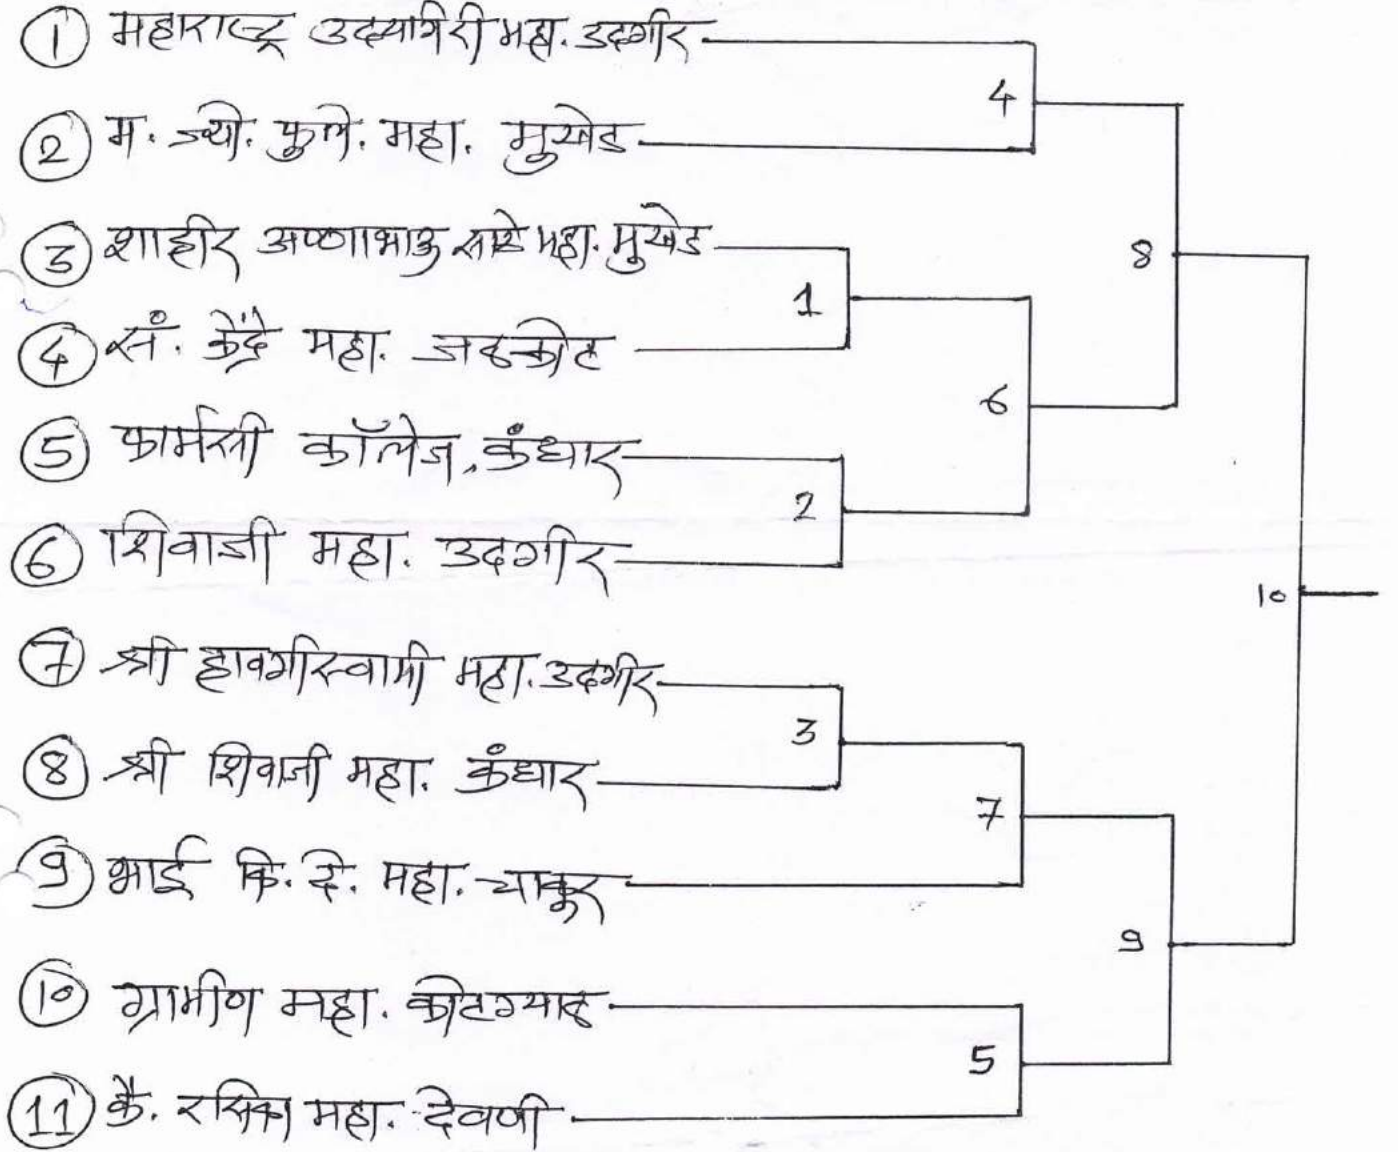 ① महाराष्ट्र उदयगिरी महा. उदगीर
② म. ज्यो. फुले. महा. मुखेड
③ शाहीर अण्णाभाऊ साठे महा. मुखेड
④ सं. केंद्रे महा. जळकोट
⑤ फार्मसी कॉलेज, कंधार
⑥ शिवाजी महा. उदगीर
⑦ श्री हावगीस्वामी महा. उदगीर
⑧ श्री शिवाजी महा. कंधार
⑨ भाई कि. दे. महा. चाकूर
⑩ ग्रामीण महा. कोटग्याळ
⑪ कै. रसिका महा. देवणी
4
8
1
6
2
10
3
7
9
5